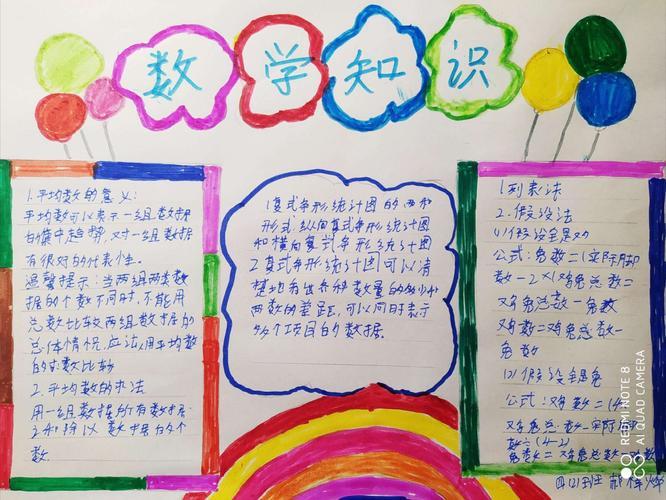 数学知识
1.平均数的意义:
平均数可以表示一组数据
的集中趋势,对一组数据
有很好的代表性。
温馨提示:当两组两类数
据的个数不同时,不能用
总数比较两组数据的
总体情况,应该用平均数
的求数比较
2.平均数的求法
用一组数据所有数据
之和除以数据的个
数.
1复式条形统计图的两种
形式:纵向复式条形统计图
和横向复式条形统计图
2复式条形统计图可以清
楚地看出各种数量的多少和
两数的差距,可以同时表示
多个项目的数据.
1列表法
2.假设法
(1)假设全是鸡
公式:兔数=(实际脚
数-2×鸡兔总数=
鸡兔总数-兔数
鸡数=鸡兔总数-
兔数
(2)假设全是兔
公式:鸡数=(4×
鸡兔总数-实际脚
数÷(4-2)
兔数=鸡兔总数-鸡数
四(2)班
REDMI NOTE 8
AI QUAD CAMERA